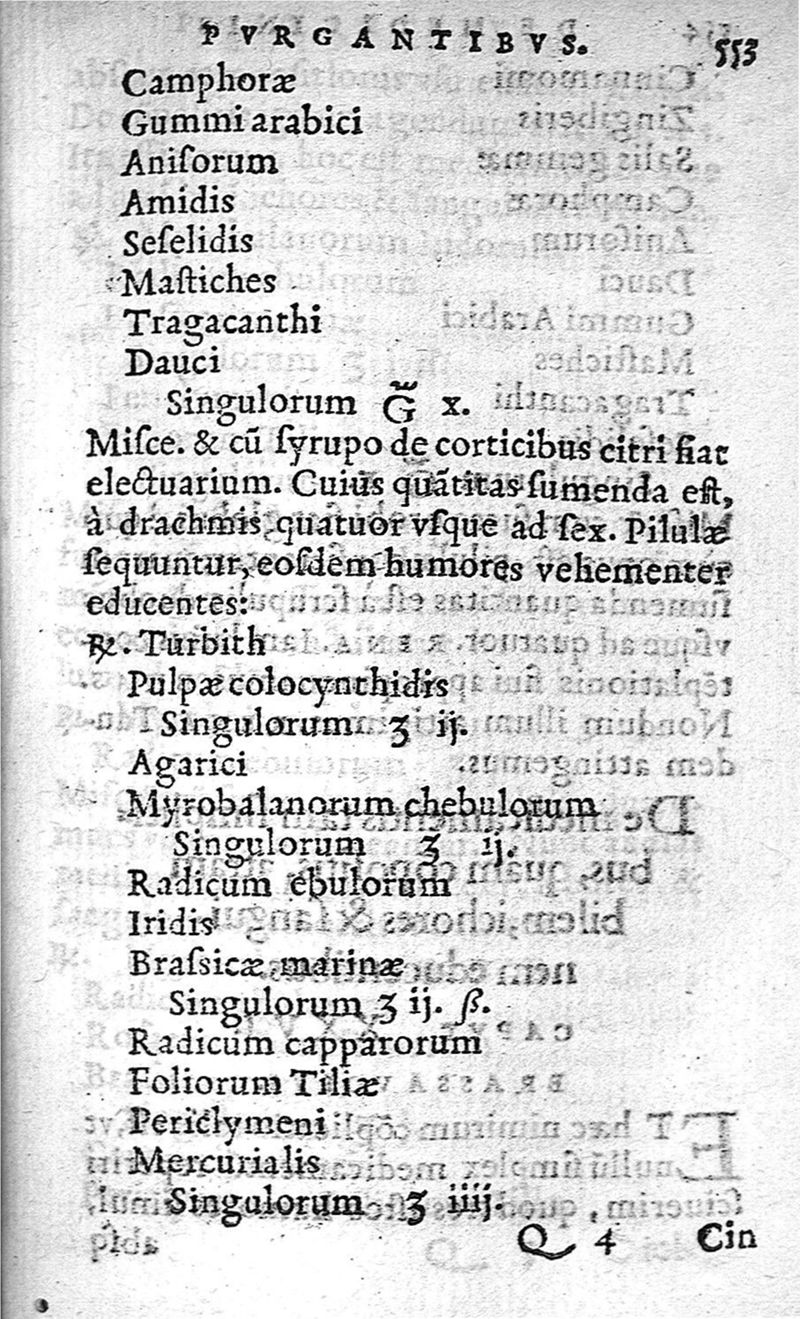 PVRGANTIBVS. 553
Camphoræ
Gummi arabici
Aniſorum
Amidis
Seſelidis
Maſtiches
Tragacanthi
Dauci
Singulorum G̃ x.
Miſce. & cũ ſyrupo de corticibus citri fiat
electuarium. Cuius quãtitas ſumenda eſt,
à drachmis quatuor vſque ad ſex. Pilulæ
ſequuntur, eoſdem humores vehementer
educentes:
℞. Turbith
Pulpæ colocynthidis
Singulorum ʒ ij.
Agarici
Myrobalanorum chebulorum
Singulorum ʒ ij.
Radicum ebulorum
Iridis
Braſsicæ marinæ
Singulorum ʒ ij. ß.
Radicum capparorum
Foliorum Tiliæ
Periclymeni
Mercurialis
Singulorum ʒ iiij.
Q 4 Cin